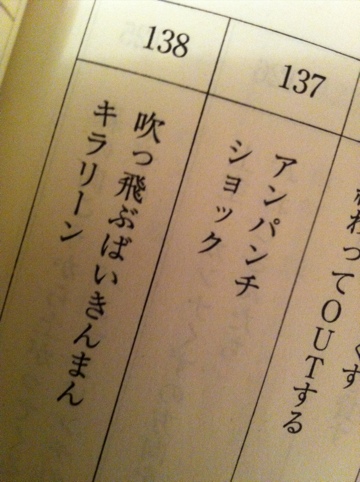 くす
わってOUTする
137
アンパンチ
ショック
138
吹っ飛ぶばいきんまん
キラリーン